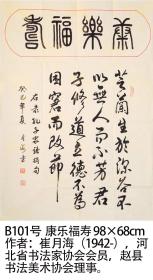 康樂福壽
芝蘭生於深谷不
以無人而不芳君
子修道立德不為
困窮而改節
右录孔子家语摘句
癸巳年夏 月海
B101号 康乐福寿98×68cm
作者：崔月海（1942-），河
北省书法家协会会员，赵县
书法美术协会理事。